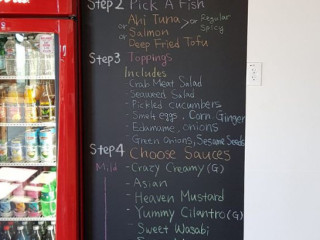 Step2 Pick A Fish
Ahi Tuna > or Regular
or Salmon Spicy
or Deep Fried Tofu
Step3 Toppings
Includes
- Crab Meat Salad
- Seaweed Salad
- Pickled cucumbers
- Smelt eggs, Corn, Ginger
- Edamame, onions
- Green Onions, Sesame Seeds
Step4 Choose Sauces
Mild - Crazy Creamy (G)
- Asian
- Heaven Mustard
- Yummy Cilantro (G)
- Sweet Wasabi